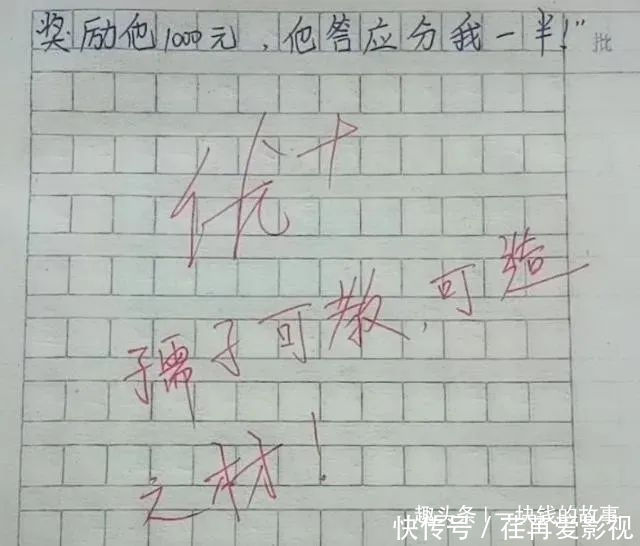 奖励他1000元，他答应分我一半！”
批
优+
孺子可教，可造
之材！
趣头条 | 一块钱的故事
快传号 / 荏苒爱影视